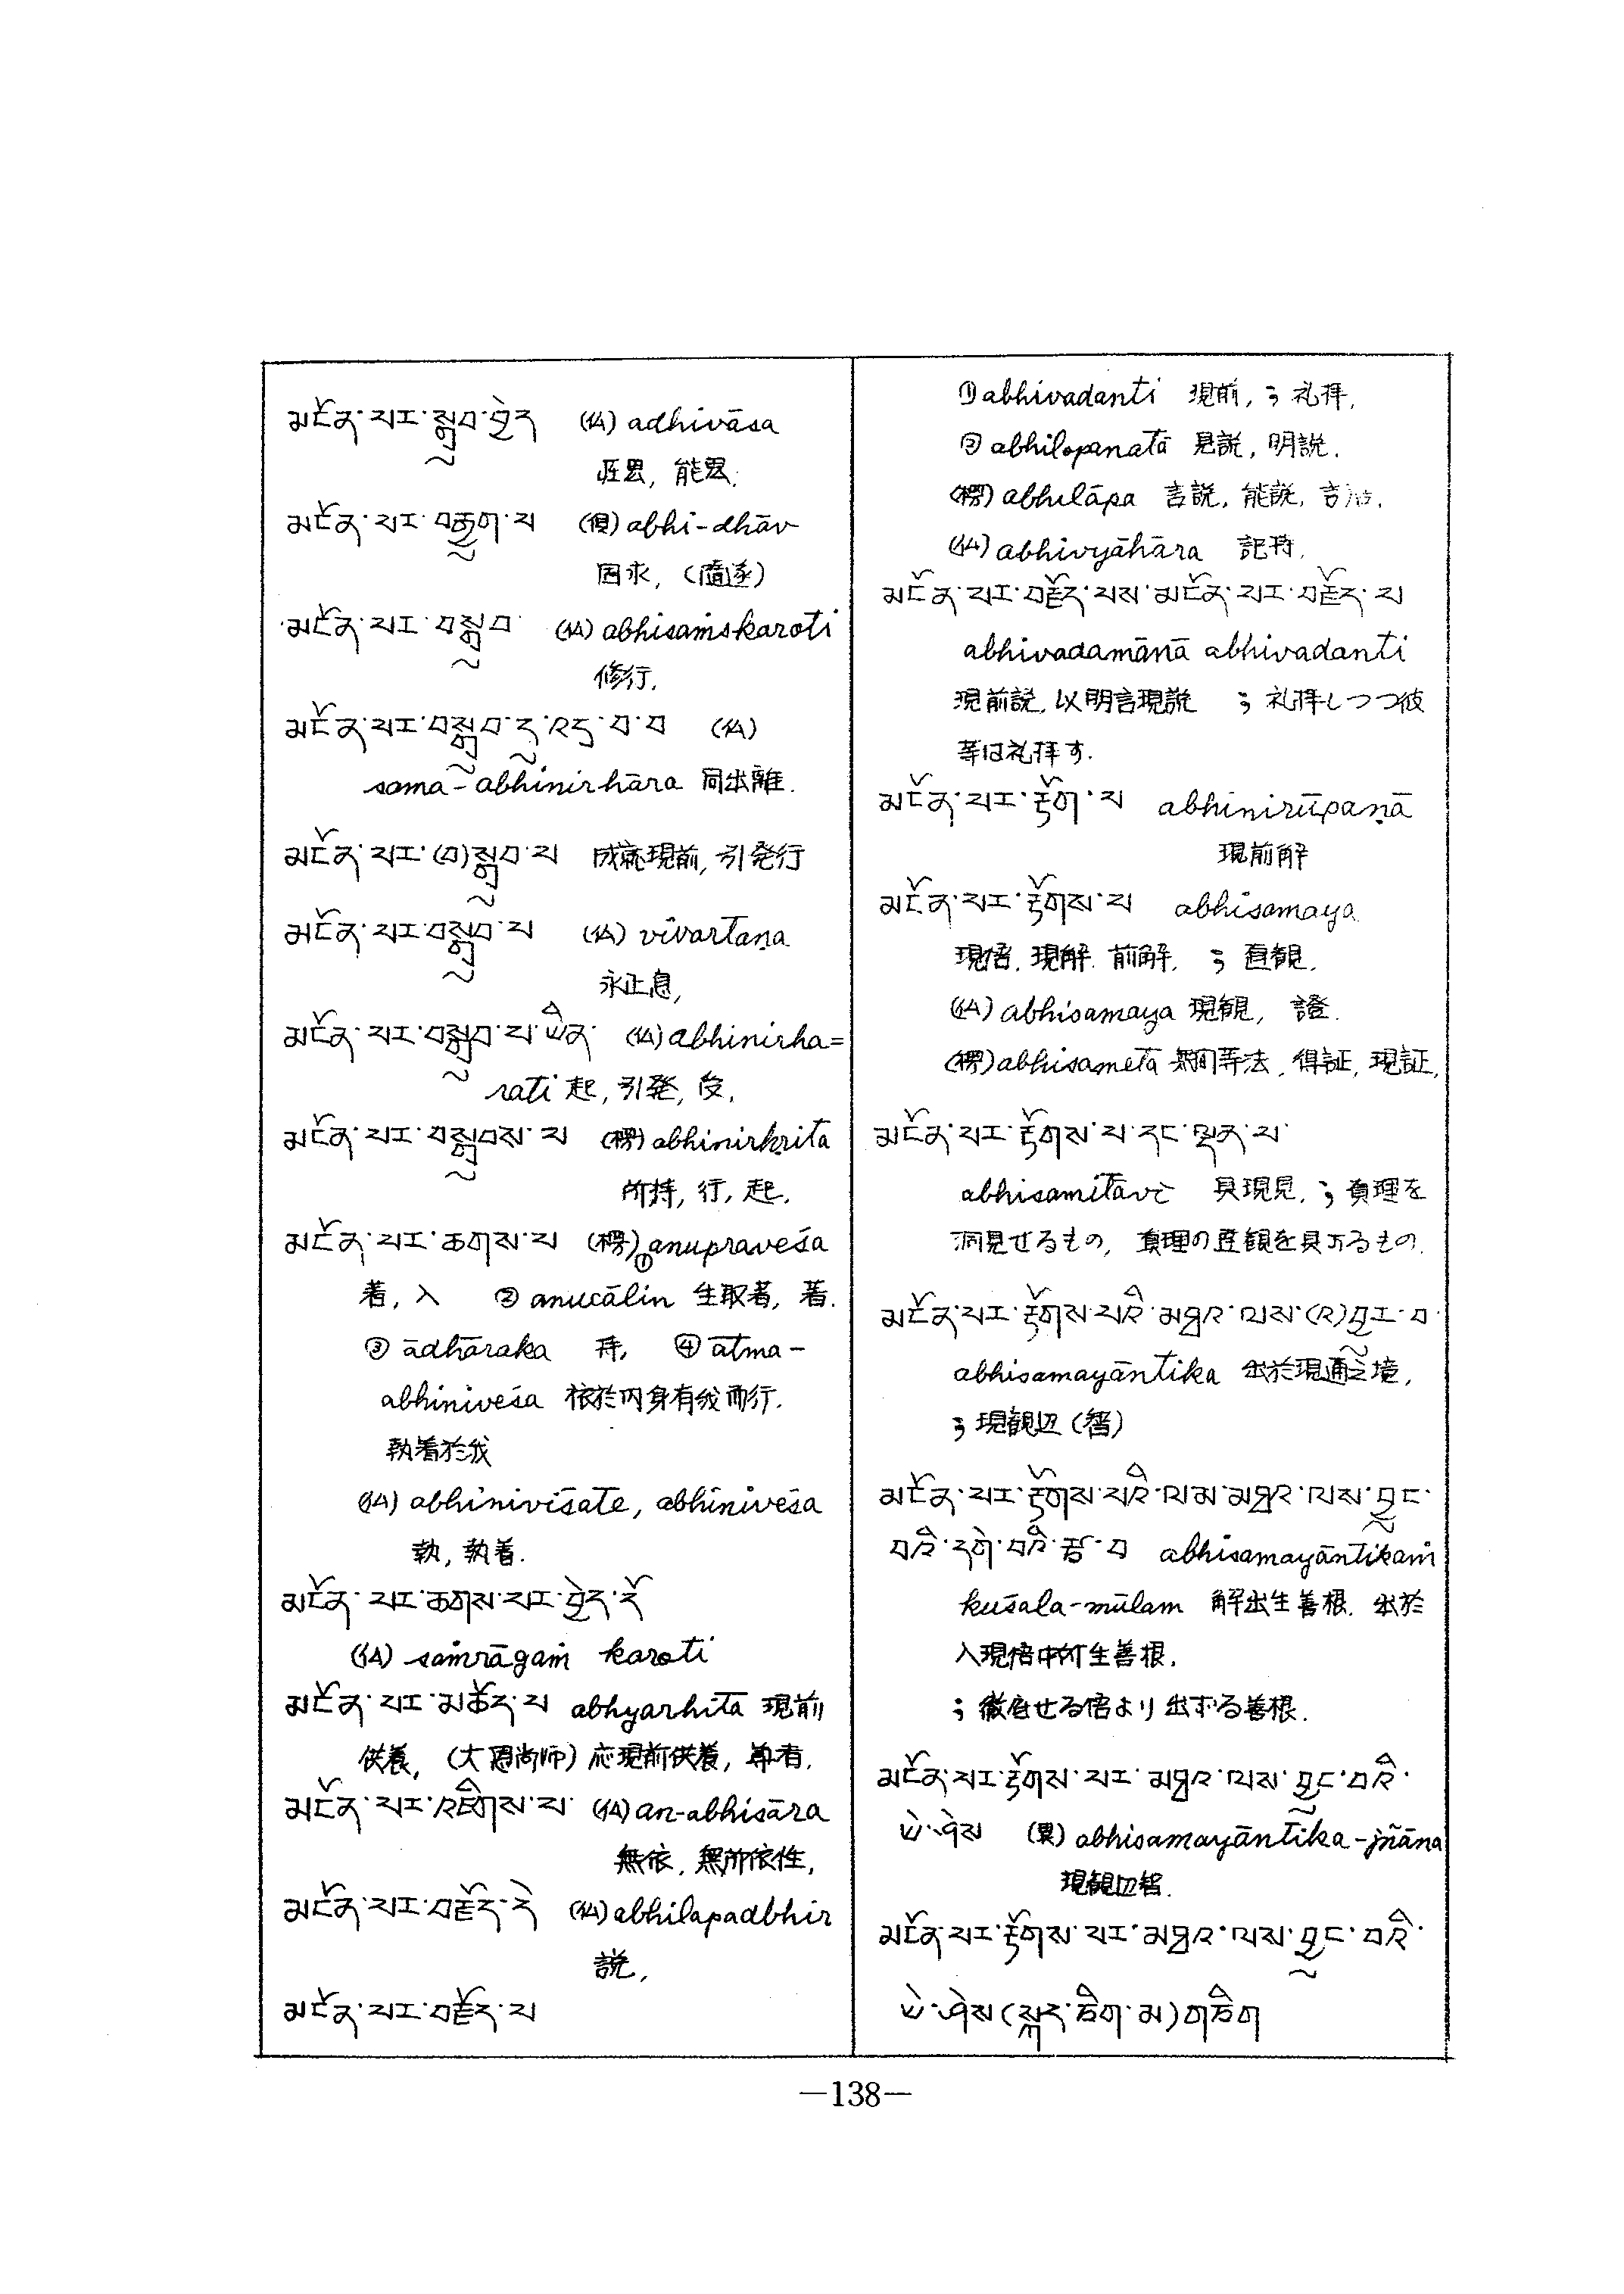 མངོན་པར་སྒྲུབ་བྱེད (仏) adhivāsa
能忍.
མངོན་པར་བརྒྱུག་པ (倶) abhi-dhāv
周求, (隨逐)
མངོན་པར་བསྒྲུབ (仏) abhisaṁskaroti
修行.
མངོན་པར་བསྒྲུབ་ (仏)
sama-abhinirhāra 同出離.
མངོན་པར་(བ)སྒྲུབ་པ 成就現前, 引発行
མངོན་པར་བསྒྲུབ་པ (仏) vivartaṇa
永止息,
མངོན་པར་བསྒྲུབ་པ་ཡིན་ (仏) abhinirha=
rati 起, 引発,
མངོན་པར་བསྒྲུབས་པ (楞) abhinirkṛita
所持, 行, 起.
མངོན་པར་ཆགས་པ (楞)① anupraveśa
着, 入 ② anucālin 生取著, 著.
③ ādhāraka 持, ④ ātma-
abhiniveśa 依於内身有我而行.
執着於我
(仏) abhiniviśate, abhiniveśa
執, 執着.
མངོན་པར་ཆགས་པར་བྱེད་དོ
(仏) saṁrāgaṁ karoti
མངོན་པར་མཆོད་པ abhyarhitā 現前
供養, (大恩尚师) 応現前供養, 尊者.
མངོན་པར་འཇིགས་པ་ (仏) an-abhisāra
無依, 無所依性,
མངོན་པར་བརྗོད་དེ (仏) abhilapadbhir
説,
མངོན་པར་བརྗོད་པ
① abhivadanti 現前, ; 礼拝,
② abhilopanatā 見説, 明説.
(楞) abhilāpa 言説, 能説,
(仏) abhivyāhāra 記持,
མངོན་པར་བརྗོད་པས་མངོན་པར་བརྗོད་པ
abhivadamānā abhivadanti
現前説, 以明言現說 ; 礼拝しつつ彼
等は礼拝す.
མངོན་པར་རྟོག་པ abhinirūpaṇā
現前解
མངོན་པར་རྟོགས་པ abhisamaya
現悟, 現解, 前解, ; 直観.
(仏) abhisamaya 現観, 證.
(楞) abhisametā 無間等法, 得証, 現証,
མངོན་པར་རྟོགས་པ་དང་ལྡན་པ་
abhisamitāvī 具現見, ; 真理を
洞見せるもの, 真理の直観を具するもの.
མངོན་པར་རྟོགས་པའི་མཐའ་ལས་(འ)བྱུང་བ་
abhisamayāntika 出於現通之境,
; 現観辺 (智)
མངོན་པར་རྟོགས་པའི་ལམ་མཐའ་ལས་བྱུང་
བའི་དགེ་བའི་རྩ་བ abhisamayāntikaṁ
kuśala-mūlam 解出生善根. 出於
入現悟中所生善根.
; 徹底せる悟より出ずる善根.
མངོན་པར་རྟོགས་པར་མཐའ་ལས་བྱུང་བའི་
ཡེ་ཤེས (異) abhisamayāntika-jñāna
現観辺智.
མངོན་པར་རྟོགས་པར་མཐའ་ལས་བྱུང་བའི་
ཡེ་ཤེས (སྐད་ཅིག་མ) གཅིག
—138—